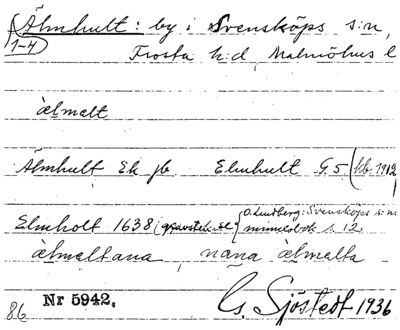 Älmhult: by i Svensköps s:n,
1-4) Frosta h:d, Malmöhus l
älmelt
Älmhult Ek jb Elmhult G.5 (kb. 1912
Elmholt 1638 (gravsten se O. Lundberg: Svensköps s:ns
minnesbok s. 12
älmeltana, nana älmelta
86 Nr 5942. G. Sjöstedt 1936